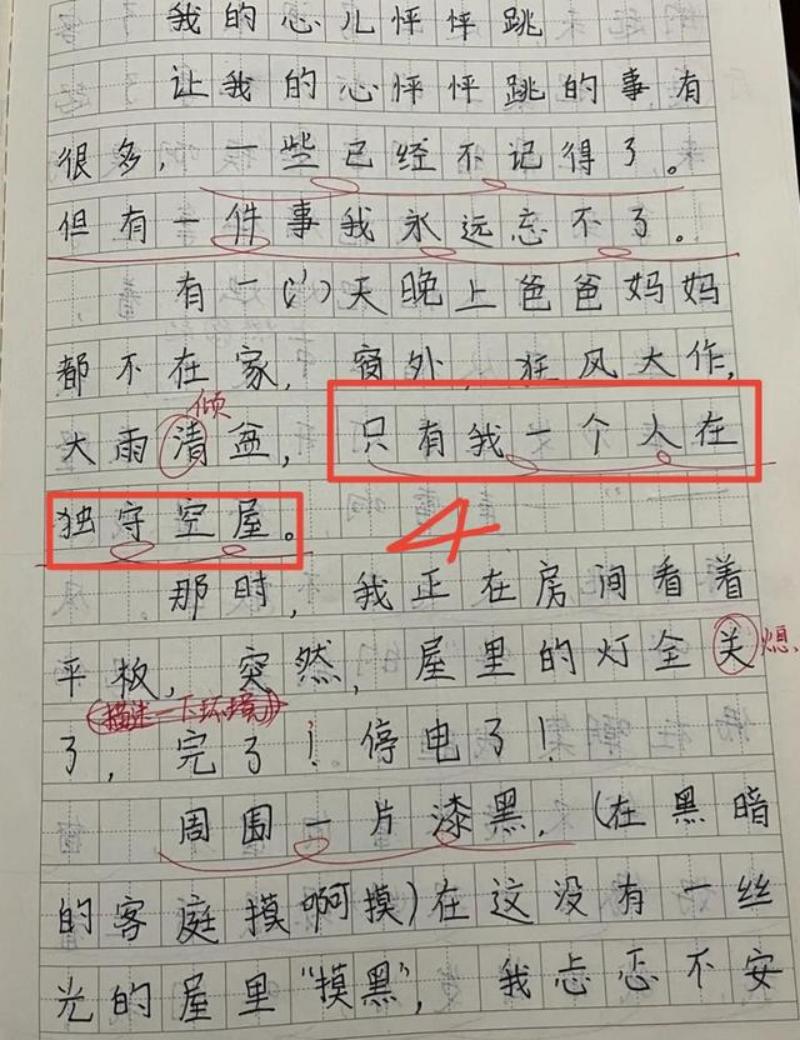 我的心儿怦怦跳
让我的心怦怦跳的事有
很多，一些已经不记得了。
但有一件事我永远忘不了。
有一天晚上爸爸妈妈
都不在家，窗外，狂风大作，
倾
大雨清盆，只有我一个人在
独守空屋。
4
那时，我正在房间看着
平板，突然，屋里的灯全关
熄
(描述一下环境)
了，完了！停电了！
周围一片漆黑，(在黑暗
的客庭摸啊摸)在这没有一丝
光的屋里“摸黑”，我忐忑不安